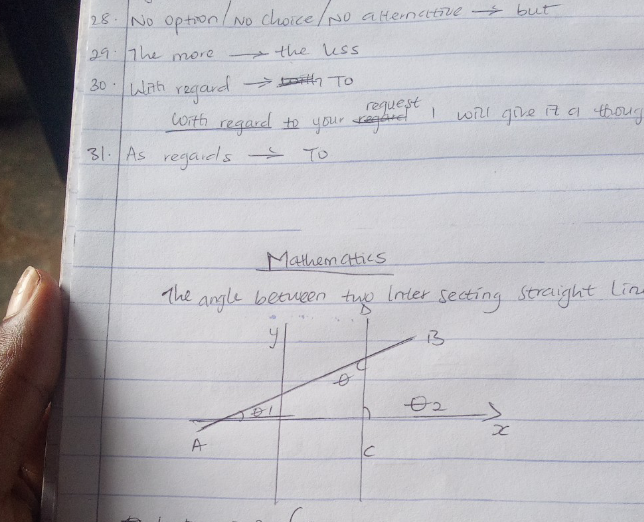 28. No option/No choice/No alternative → but
29. The more → the less
30. With regard → To
With regard to your request I will give it a
31. As regards → To
Mathematics
The angle between two Inter secting straight
D
y
B
θ
θ1
θ2
x
A
C